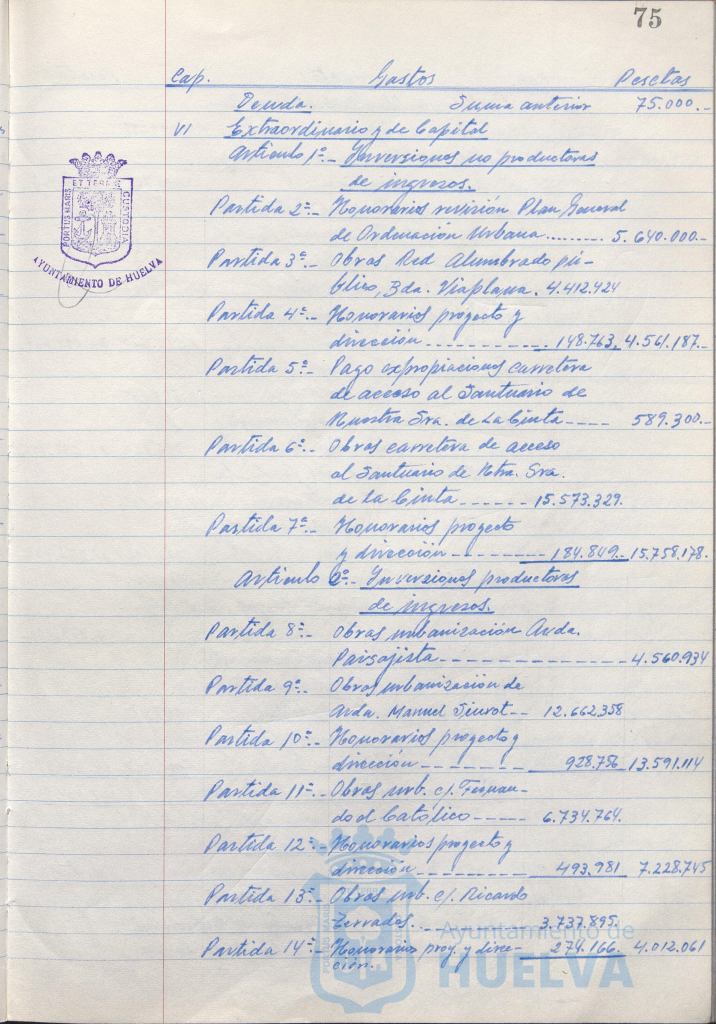 75
Cap. Gastos Pesetas
Deuda. Suma anterior 75.000.-
VI Extraordinario y de Capital
Artículo 1º.- Inversiones no productoras
de ingresos.
Partida 2ª.- Honorarios revisión Plan General
de Ordenación Urbana......... 5.640.000.-
Partida 3ª.- Obras Red Alumbrado pú-
blico, Bda. Viaplana. 4.412.424
Partida 4ª.- Honorarios proyecto y
dirección ............ 148.763. 4.561.187.-
Partida 5ª.- Pago expropiaciones carretera
de acceso al Santuario de
Nuestra Sra. de La Cinta---- 589.300.-
Partida 6ª.- Obras carretera de acceso
al Santuario de Ntra. Sra.
de La Cinta ------ 15.573.329.
Partida 7ª.- Honorarios proyecto
y dirección ------- 184.849.- 15.758.178.
Artículo 2º.- Inversiones productoras
de ingresos.
Partida 8ª.- Obras urbanización Avda.
Paisajista-------------- 4.560.934
Partida 9ª.- Obras urbanización de
Avda. Manuel Siurot-- 12.662.358
Partida 10ª.- Honorarios proyecto y
dirección------------ 928.756 13.591.114
Partida 11ª.- Obras urb. c/. Fernan-
do el Católico----- 6.734.764.
Partida 12ª.- Honorarios proyecto y
dirección------------ 493.981 7.228.745
Partida 13ª.- Obras urb. c/. Ricardo
Terrades. --- 3.737.895.
Partida 14ª.- Honorarios proy. y direc- 274.166. 4.012.061
ción.
ET TERRÆ
PORTUS MARIS
CUSTODIA
AYUNTAMIENTO DE HUELVA
Ayuntamiento de
HUELVA